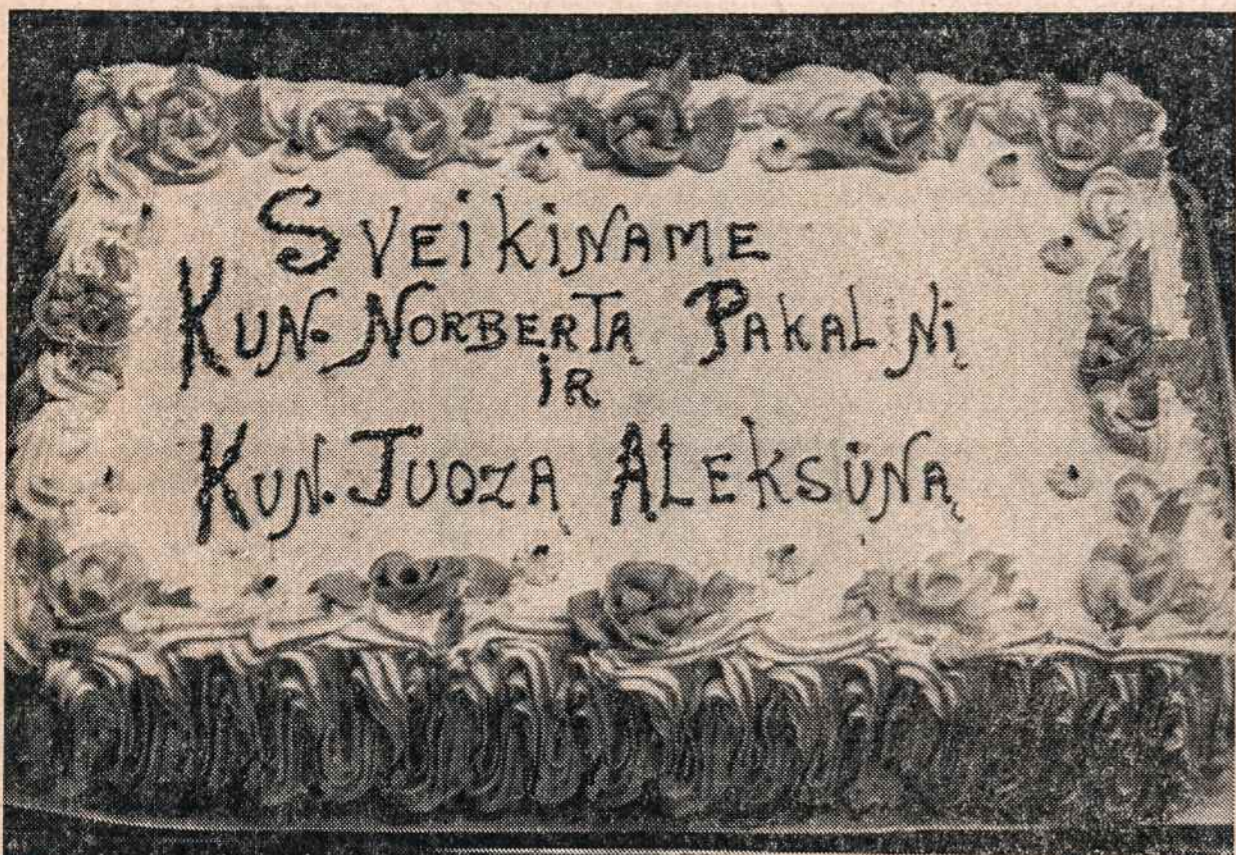 SVEIKINAME
KUN. NORBERTĄ PAKALNĮ
IR
KUN. JUOZĄ ALEKSŪNĄ